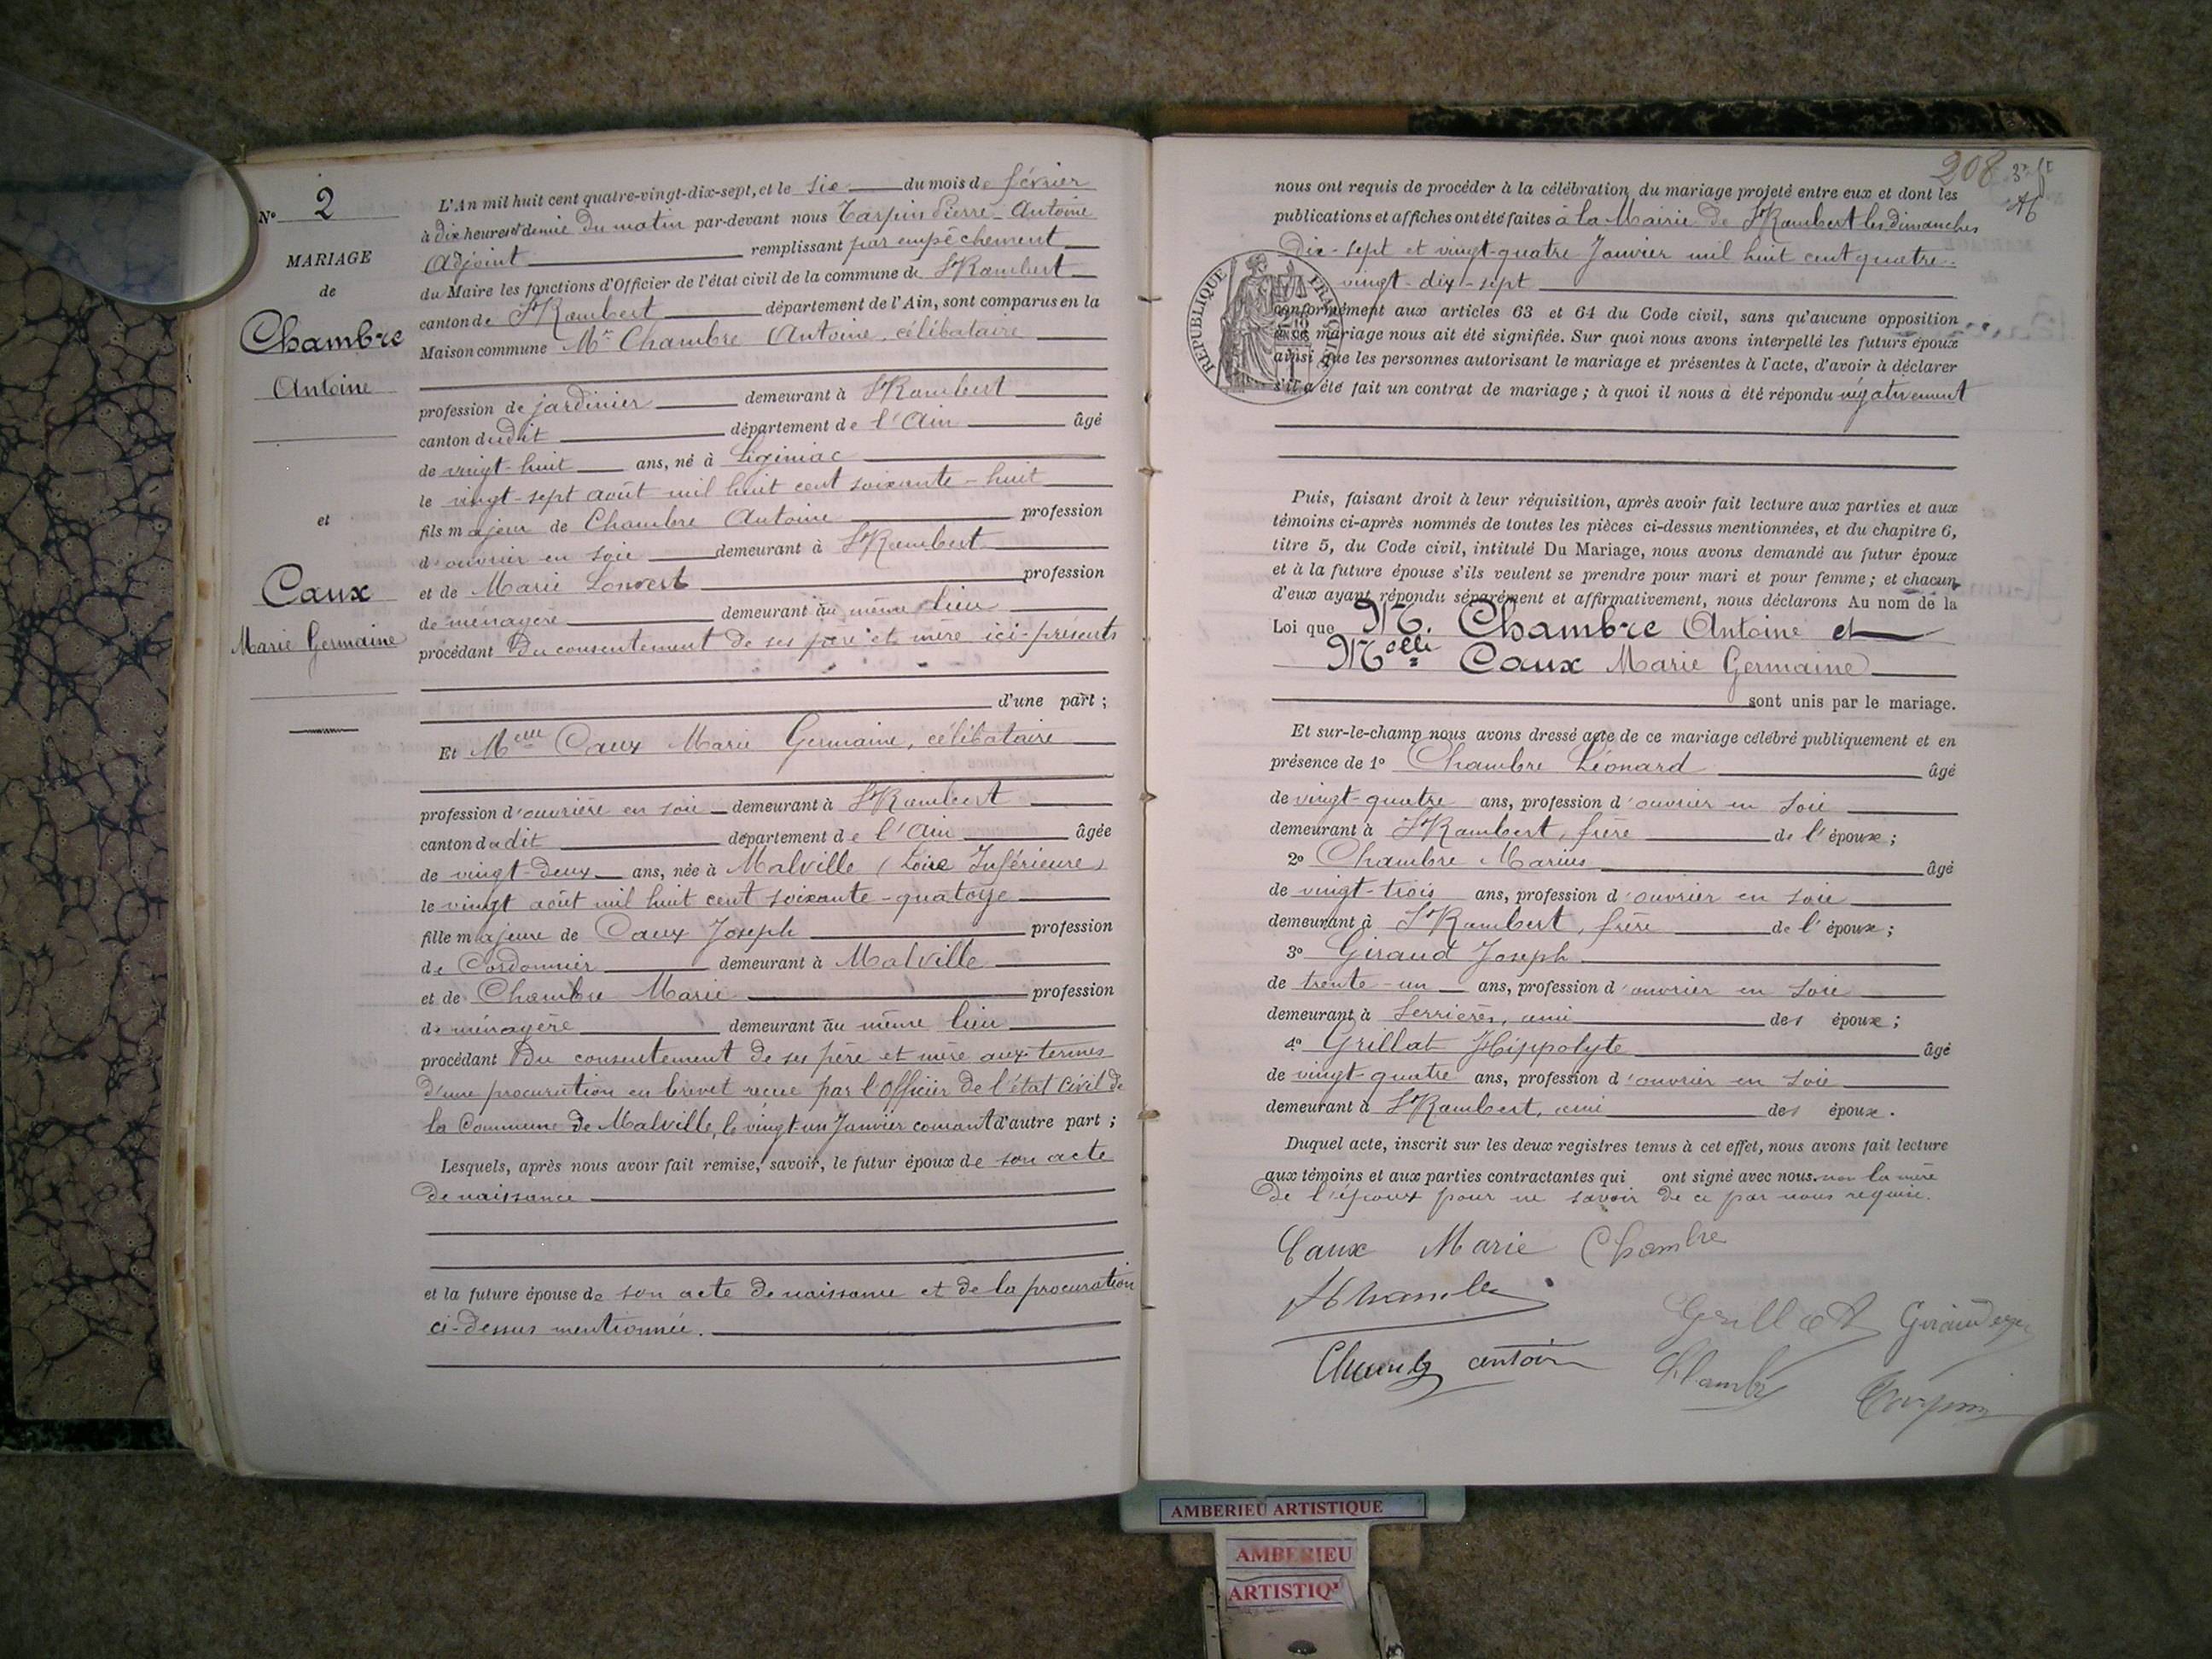 N° 2
MARIAGE
de
Chambre
Antoine
et
Caux
Marie Germaine
L'An mil huit cent quatre-vingt-dix-sept, et le six du mois de février
à dix heures et demie du matin par-devant nous Tarpin Pierre-Antoine
Adjoint remplissant par empêchement
du Maire les fonctions d'Officier de l'état civil de la commune de St Rambert
canton de St Rambert département de l'Ain, sont comparus en la
Maison commune Mr Chambre Antoine, célibataire
profession de jardinier demeurant à St Rambert
canton dudit département de l'Ain âgé
de vingt-huit ans, né à Liginiac
le vingt-sept août mil huit cent soixante-huit
fils majeur de Chambre Antoine profession
d'ouvrier en soie demeurant à St Rambert
et de Marie profession
de ménagère demeurant au même lieu
procédant du consentement de ses père et mère ici-présents
d'une part ;
Et Melle Caux Marie Germaine, célibataire
profession d'ouvrière en soie demeurant à St Rambert
canton dudit département de l'Ain âgée
de vingt-deux ans, née à Malville (Loire Inférieure)
le vingt août mil huit cent soixante-quatorze
fille majeure de Caux Joseph profession
de Cordonnier demeurant à Malville
et de Chambre Marie profession
de ménagère demeurant au même lieu
procédant du consentement de ses père et mère aux termes
d'une procuration en brevet reçue par l'Officier de l'état civil de
la Commune de Malville, le vingt-un Janvier courant d'autre part ;
Lesquels, après nous avoir fait remise, savoir, le futur époux de son acte
de naissance
et la future épouse de son acte de naissance et de la procuration
ci-dessus mentionnée.
208
nous ont requis de procéder à la célébration du mariage projeté entre eux et dont les
publications et affiches ont été faites à la Mairie de St Rambert les dimanches
dix-sept et vingt-quatre Janvier mil huit cent quatre-
vingt-dix-sept
REPUBLIQUE FRANÇAISE
conformément aux articles 63 et 64 du Code civil, sans qu'aucune opposition
à ce mariage nous ait été signifiée. Sur quoi nous avons interpellé les futurs époux
ainsi que les personnes autorisant le mariage et présentes à l'acte, d'avoir à déclarer
s'il a été fait un contrat de mariage ; à quoi il nous a été répondu négativement
Puis, faisant droit à leur réquisition, après avoir fait lecture aux parties et aux
témoins ci-après nommés de toutes les pièces ci-dessus mentionnées, et du chapitre 6,
titre 5, du Code civil, intitulé Du Mariage, nous avons demandé au futur époux
et à la future épouse s'ils veulent se prendre pour mari et pour femme ; et chacun
d'eux ayant répondu séparément et affirmativement, nous déclarons Au nom de la
Loi que M. Chambre Antoine et
Melle Caux Marie Germaine
sont unis par le mariage.
Et sur-le-champ nous avons dressé acte de ce mariage célébré publiquement et en
présence de 1° Chambre Léonard âgé
de vingt-quatre ans, profession d'ouvrier en soie
demeurant à St Rambert, frère de l'époux ;
2° Chambre Marius âgé
de vingt-trois ans, profession d'ouvrier en soie
demeurant à St Rambert, frère de l'époux ;
3° Giraud Joseph
de trente-un ans, profession d'ouvrier en soie
demeurant à Serrières, ami des époux ;
4° Grillat Hippolyte âgé
de vingt-quatre ans, profession d'ouvrier en soie
demeurant à St Rambert, ami des époux.
Duquel acte, inscrit sur les deux registres tenus à cet effet, nous avons fait lecture
aux témoins et aux parties contractantes qui ont signé avec nous. non la mère
de l'époux pour ne savoir de ce par nous requise.
Caux Marie Chambre
Grillat Giraud
Chambre antoine Chambre Tarpin
AMBERIEU ARTISTIQUE
AMBERIEU
ARTISTIQ